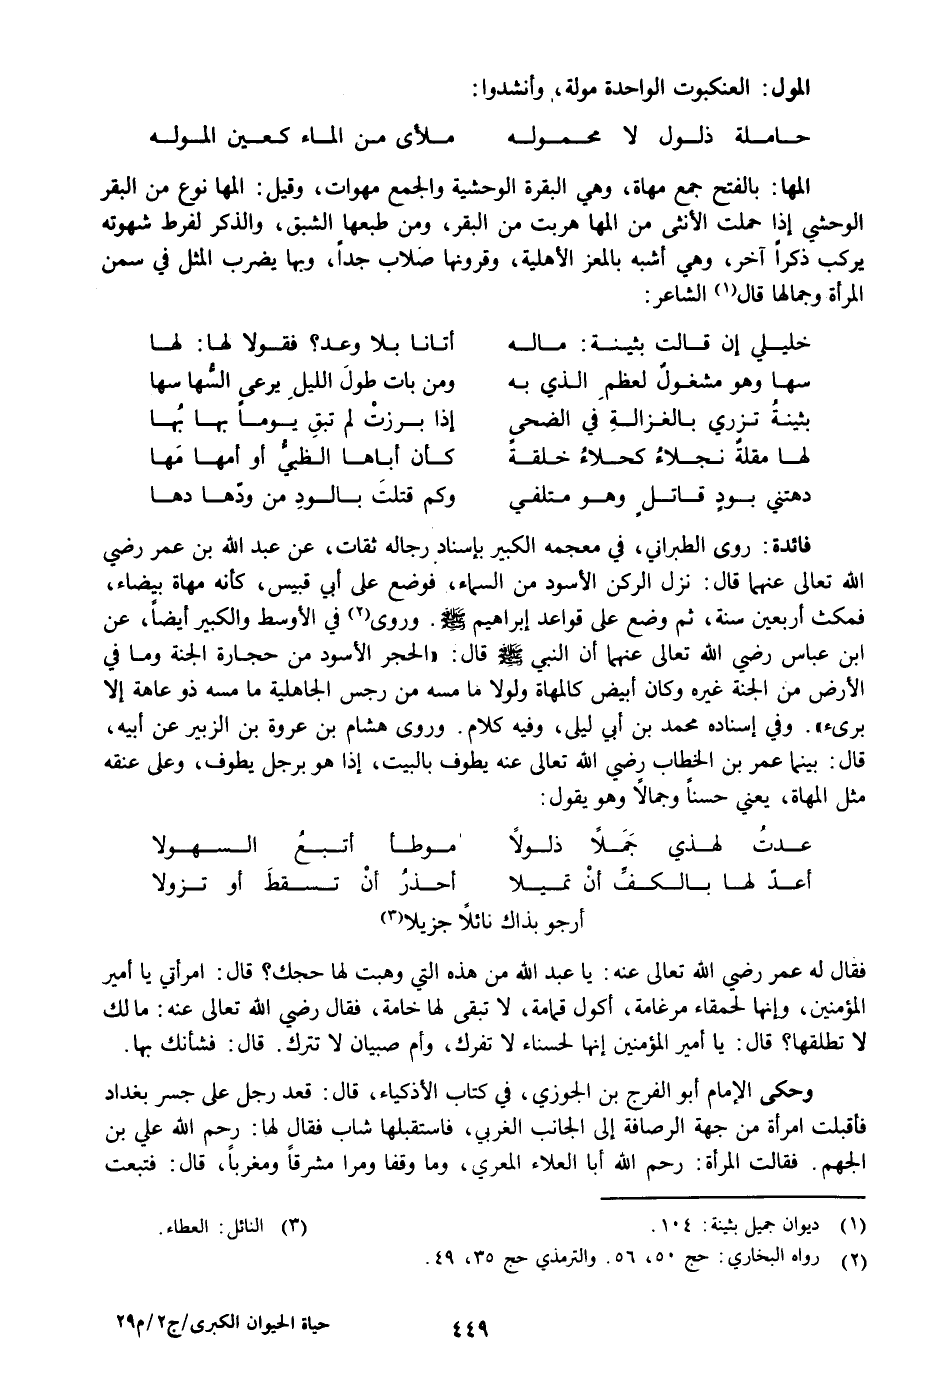 المول: العنكبوت الواحدة مولة، وأنشدوا:
حاملة ذلول لا محموله ملأى من الماء كعين الموله
المها: بالفتح جمع مهاة، وهي البقرة الوحشية والجمع مهوات، وقيل: المها نوع من البقر
الوحشي إذا حملت الأنثى من المها هربت من البقر، ومن طبعها الشبق، والذكر لفرط شهوته
يركب ذكراً آخر، وهي أشبه بالمعز الأهلية، وقرونها صلاب جداً، وبها يضرب المثل في سمن
المرأة وجمالها قال(١) الشاعر:
خليلي إن قالت بثينة: ماله أتانا بلا وعد؟ فقولا لها: لها
سها وهو مشغولٌ لعظمِ الذي به ومن بات طولَ الليلِ يرعى السُّها سها
بثينةُ تزري بالغزالةِ في الضحى إذا برزتْ لم تبقِ يوماً بها بُها
لها مقلةٌ نجلاءُ كحلاءُ خلقةً كأن أباها الظبيُّ أو أمها مَها
دهتني بودٍ قاتلٍ وهو متلفي وكم قتلتَ بالودِ من ودّها دها
فائدة: روى الطبراني، في معجمه الكبير بإسناد رجاله ثقات، عن عبد الله بن عمر رضي
الله تعالى عنهما قال: نزل الركن الأسود من السماء، فوضع على أبي قبيس، كأنه مهاة بيضاء،
فمكث أربعين سنة، ثم وضع على قواعد إبراهيم ﷺ. وروى(٢) في الأوسط والكبير أيضاً، عن
ابن عباس رضي الله تعالى عنهما أن النبي ﷺ قال: «الحجر الأسود من حجارة الجنة وما في
الأرض من الجنة غيره وكان أبيض كالمهاة ولولا ما مسه من رجس الجاهلية ما مسه ذو عاهة إلا
برىء». وفي إسناده محمد بن أبي ليلى، وفيه كلام. وروى هشام بن عروة بن الزبير عن أبيه،
قال: بينما عمر بن الخطاب رضي الله تعالى عنه يطوف بالبيت، إذا هو برجل يطوف، وعلى عنقه
مثل المهاة، يعني حسناً وجمالاً وهو يقول:
عدتُ لهذي جَمَلاً ذلولاً موطأ أتبعُ السهولا
أعدّ لها بالكفِّ أنْ تميلا أحذرُ أنْ تسقطَ أو تزولا
أرجو بذاك نائلاً جزيلا(٣)
فقال له عمر رضي الله تعالى عنه: يا عبد الله من هذه التي وهبت لها حجك؟ قال: امرأتي يا أمير
المؤمنين، وإنها لحمقاء مرغامة، أكول قمامة، لا تبقى لها خامة، فقال رضي الله تعالى عنه: ما لك
لا تطلقها؟ قال: يا أمير المؤمنين إنها لحسناء لا تفرك، وأم صبيان لا تترك. قال: فشأنك بها.
وحكى الإمام أبو الفرج بن الجوزي، في كتاب الأذكياء، قال: قعد رجل على جسر بغداد
فأقبلت امرأة من جهة الرصافة إلى الجانب الغربي، فاستقبلها شاب فقال لها: رحم الله علي بن
الجهم. فقالت المرأة: رحم الله أبا العلاء المعري، وما وقفا ومرا مشرقاً ومغرباً، قال: فتبعت
(١) ديوان جميل بثينة: ١٠٤. (٣) النائل: العطاء.
(٢) رواه البخاري: حج ٥٠، ٥٦. والترمذي حج ٣٥، ٤٩.
٤٤٩ حياة الحيوان الكبرى/ج٢/م٢٩